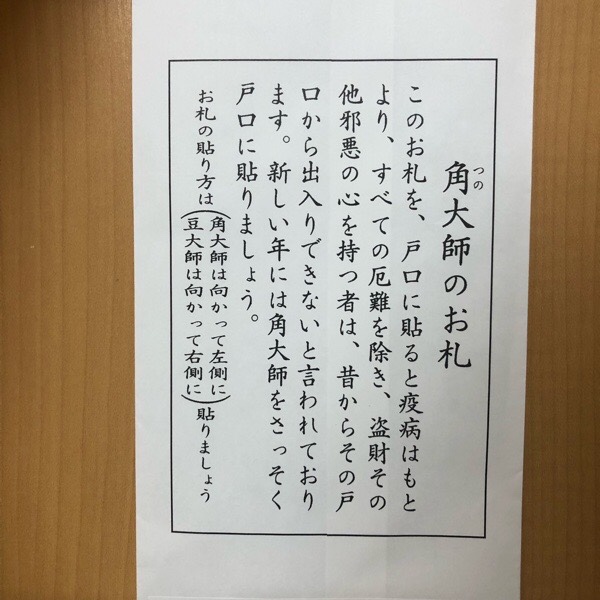 角大師のお札
つの
このお札を、戸口に貼ると疫病はもと
より、すべての厄難を除き、盗財その
他邪悪の心を持つ者は、昔からその戸
口から出入りできないと言われており
ます。新しい年には角大師をさっそく
戸口に貼りましょう。
お札の貼り方は(角大師は向かって左側に
豆大師は向かって右側に)貼りましょう